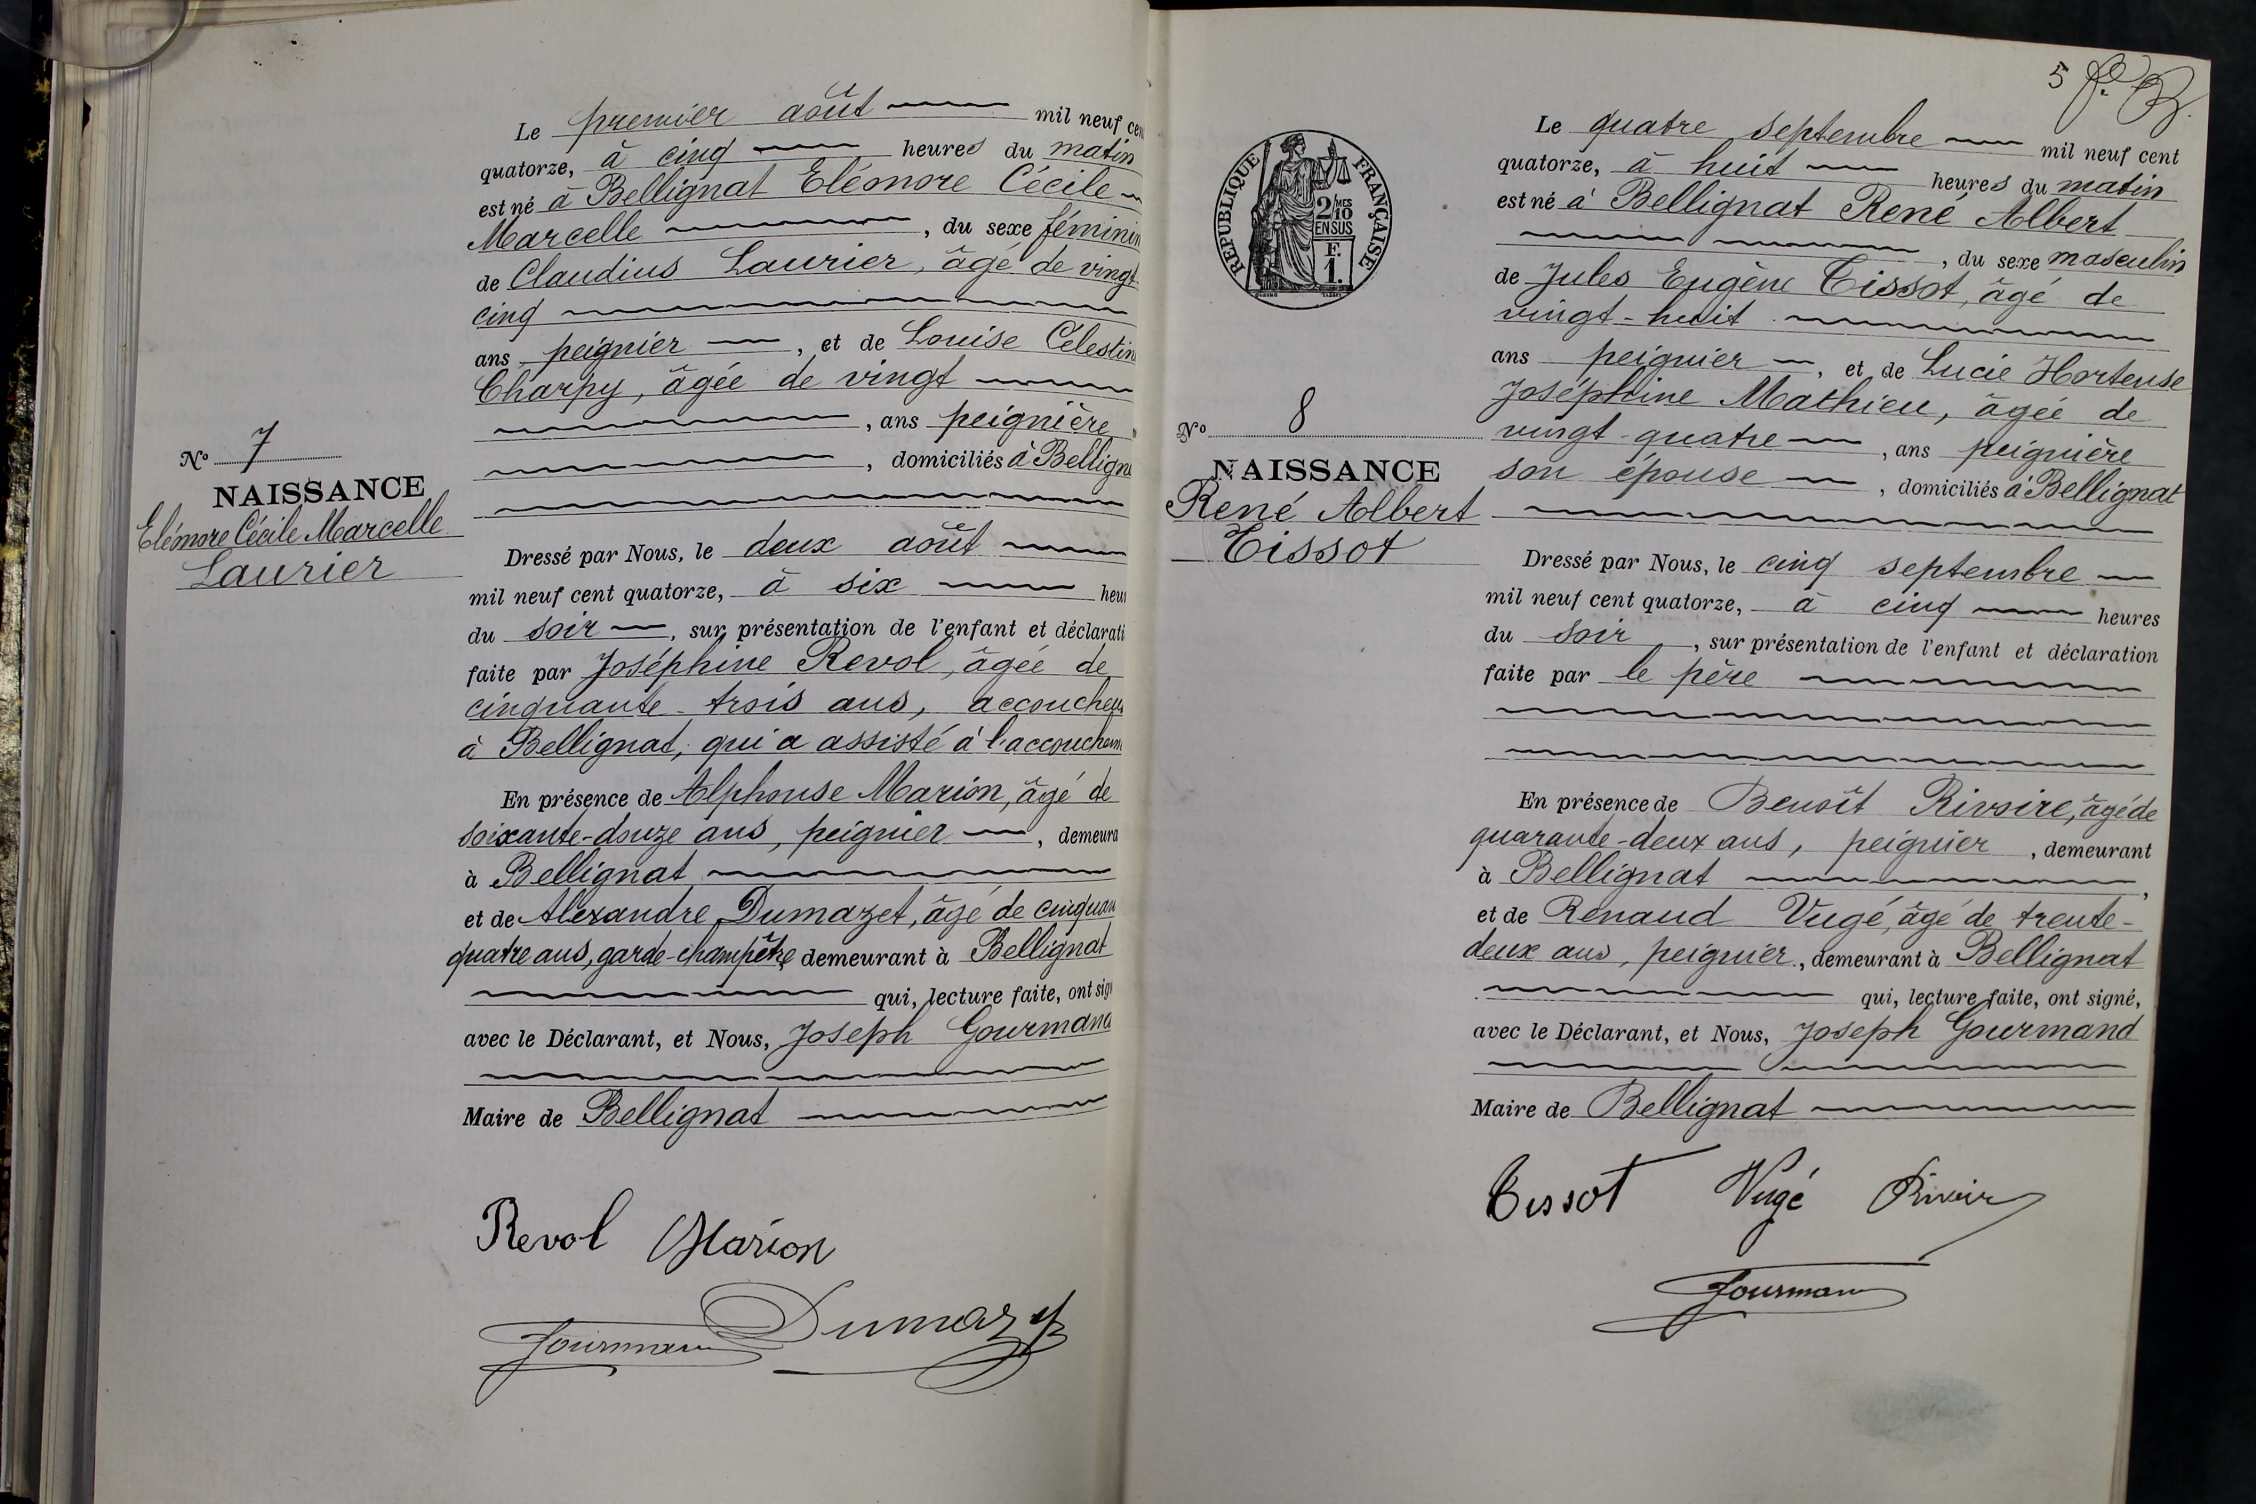 N° 7
NAISSANCE
Elémore Cécile Marcelle
Laurier
Le premier août mil neuf cen
quatorze, à cinq heures du matin
est né à Bellignat Elémore Cécile
Marcelle , du sexe féminin
de Claudius Laurier, âgé de vingt-
cinq
ans peignier , et de Louise Célestin
Charpy, âgée de vingt
, ans peignière
, domiciliés à Bellign
Dressé par Nous, le deux août
mil neuf cent quatorze, à six heu
du soir , sur présentation de l'enfant et déclarati
faite par Joséphine Revol, âgée de
cinquante-trois ans, accoucheu
à Bellignat, qui a assisté à l'accouchem
En présence de Alphonse Marion, âgé de
soixante-douze ans, peignier , demeura
à Bellignat
et de Alexandre Dumazet, âgé de cinquan
quatre ans, garde-champêtre demeurant à Bellignat
qui, lecture faite, ont sign
avec le Déclarant, et Nous, Joseph Gourmand
Maire de Bellignat
Revol Marion
Gourmand Dumazet
5
RÉPUBLIQUE FRANÇAISE
2/10 MES
EN SUS
F.
1.
N° 8
NAISSANCE
René Albert
Tissot
Le quatre septembre mil neuf cent
quatorze, à huit heures du matin
est né à Bellignat René Albert
, du sexe masculin
de Jules Eugène Tissot, âgé de
vingt-huit
ans peignier , et de Lucie Hortense
Joséphine Mathieu, âgée de
vingt-quatre , ans peignière
son épouse , domiciliés à Bellignat
Dressé par Nous, le cinq septembre
mil neuf cent quatorze, à cinq heures
du soir , sur présentation de l'enfant et déclaration
faite par le père
En présence de Benoît Rivoire, âgé de
quarante-deux ans, peignier , demeurant
à Bellignat ,
et de Renaud Vugé, âgé de trente-
deux ans, peignier , demeurant à Bellignat
qui, lecture faite, ont signé,
avec le Déclarant, et Nous, Joseph Gourmand
Maire de Bellignat
Tissot Vugé Rivoire
Gourmand